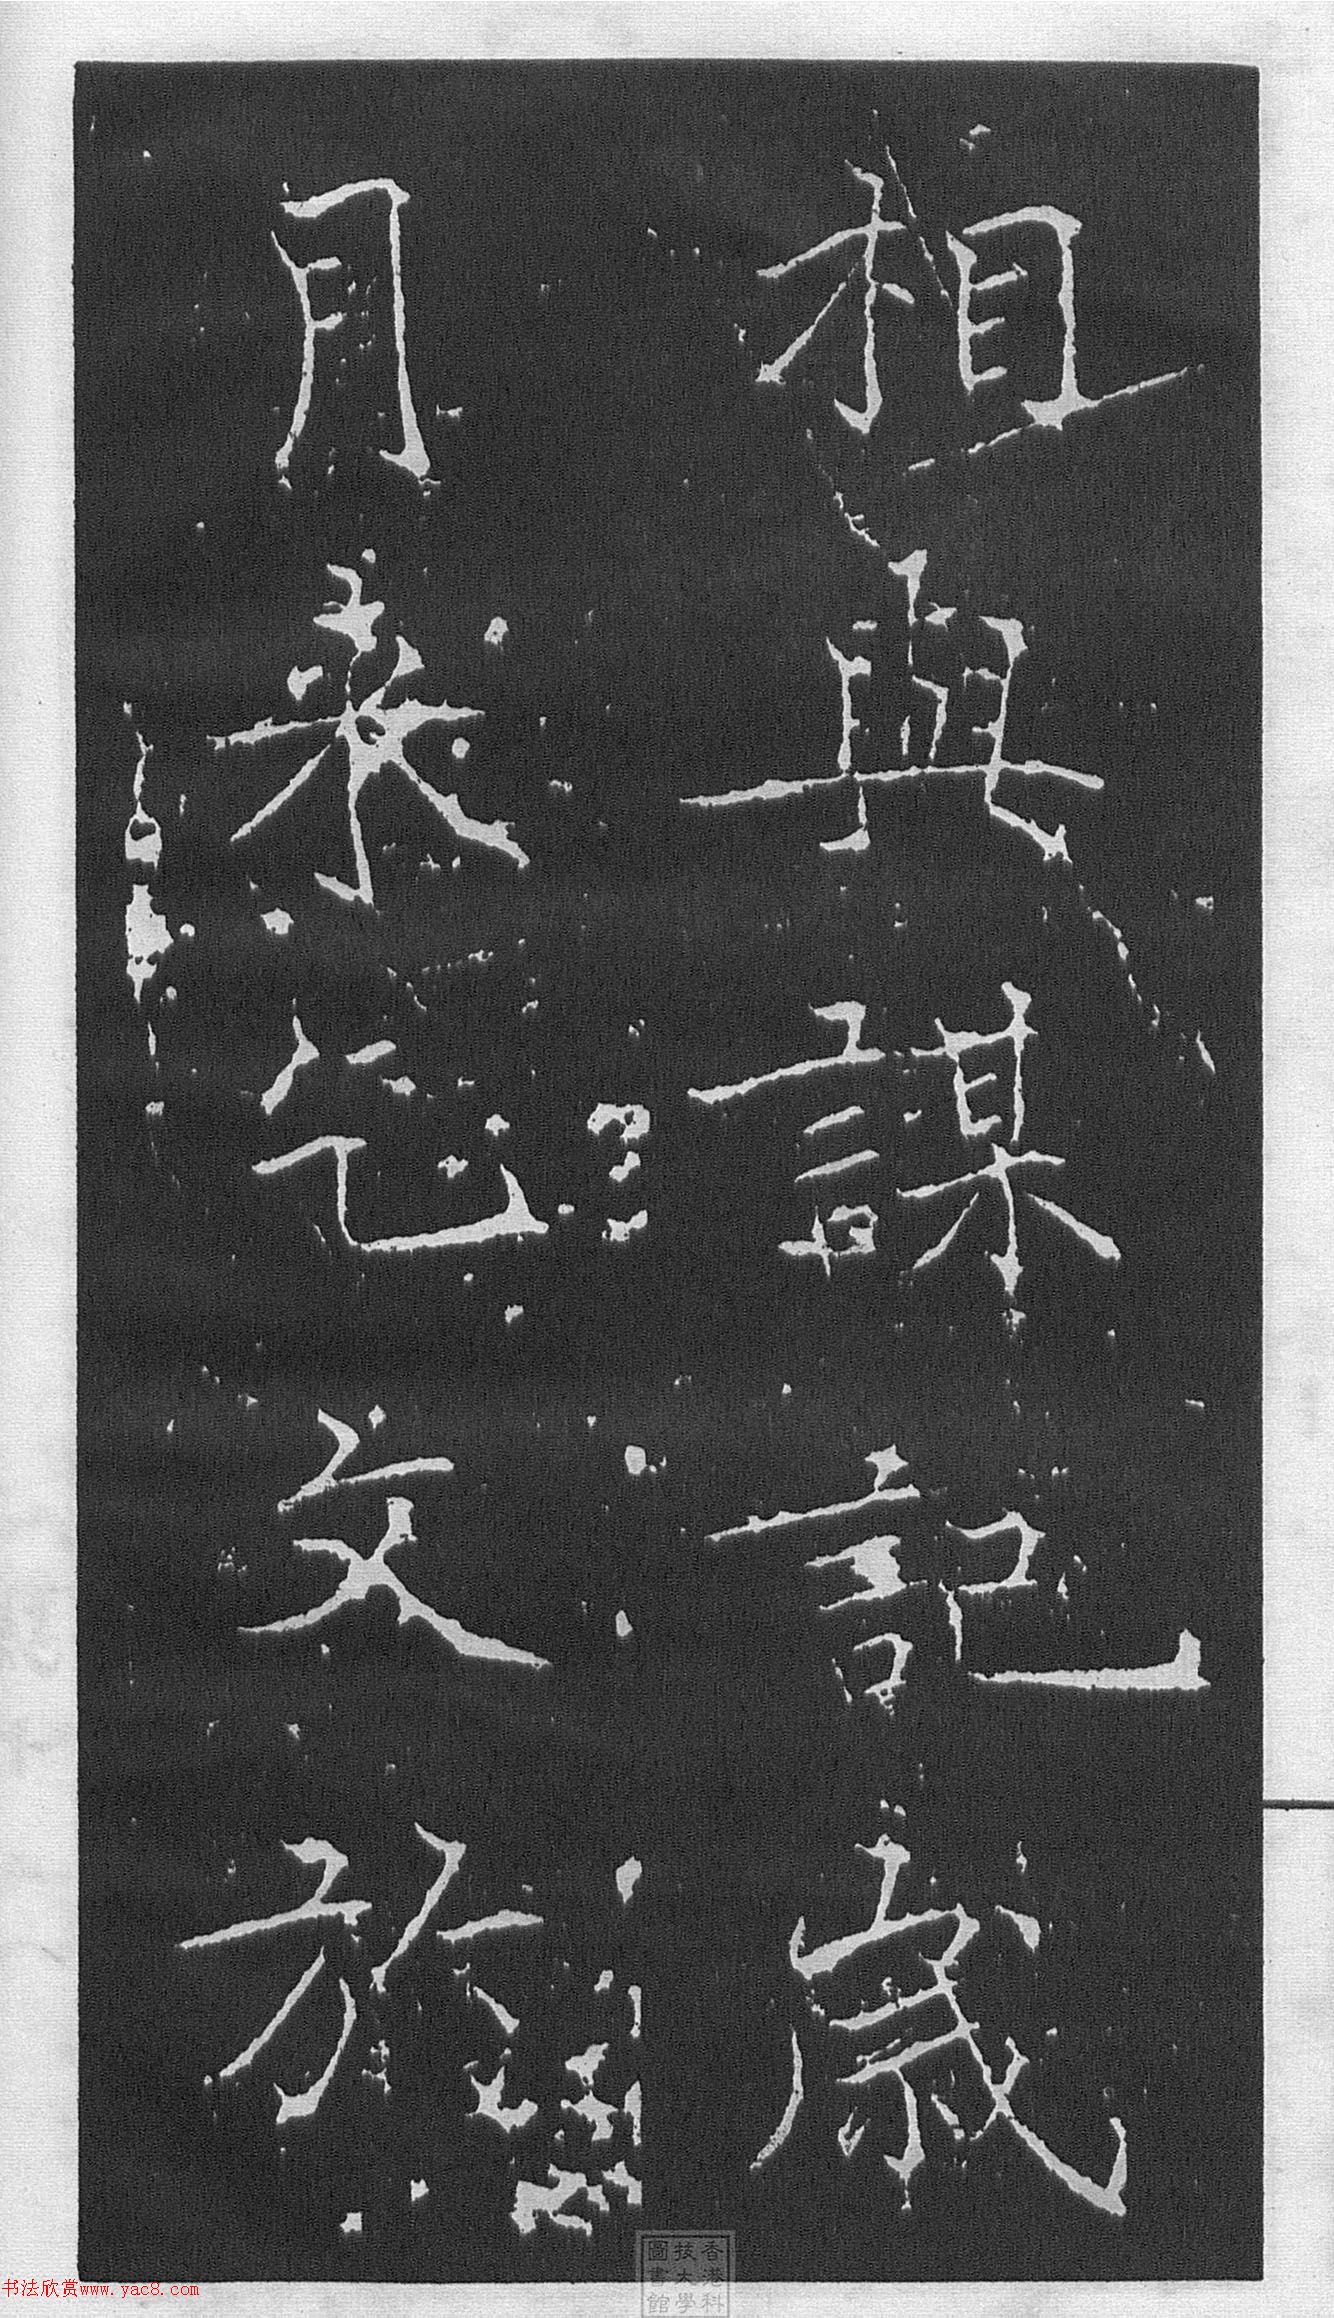 相與謀記歲
月來乞文於
香港科
技大學
圖書館
书法欣赏www.yac8.com